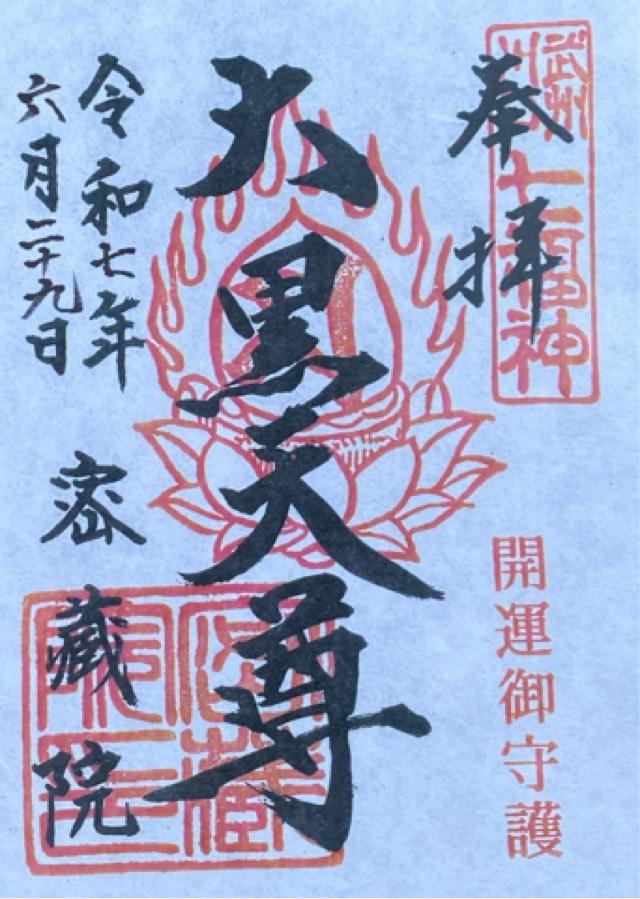 奉拝
七福神
開運御守護
大黒天尊
令和七年
六月二十九日
密蔵院